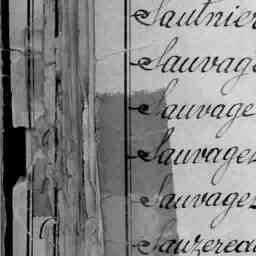 Saulnier
Sauvag
Sauvage
Sauvages
Sauvages
Sauzerea